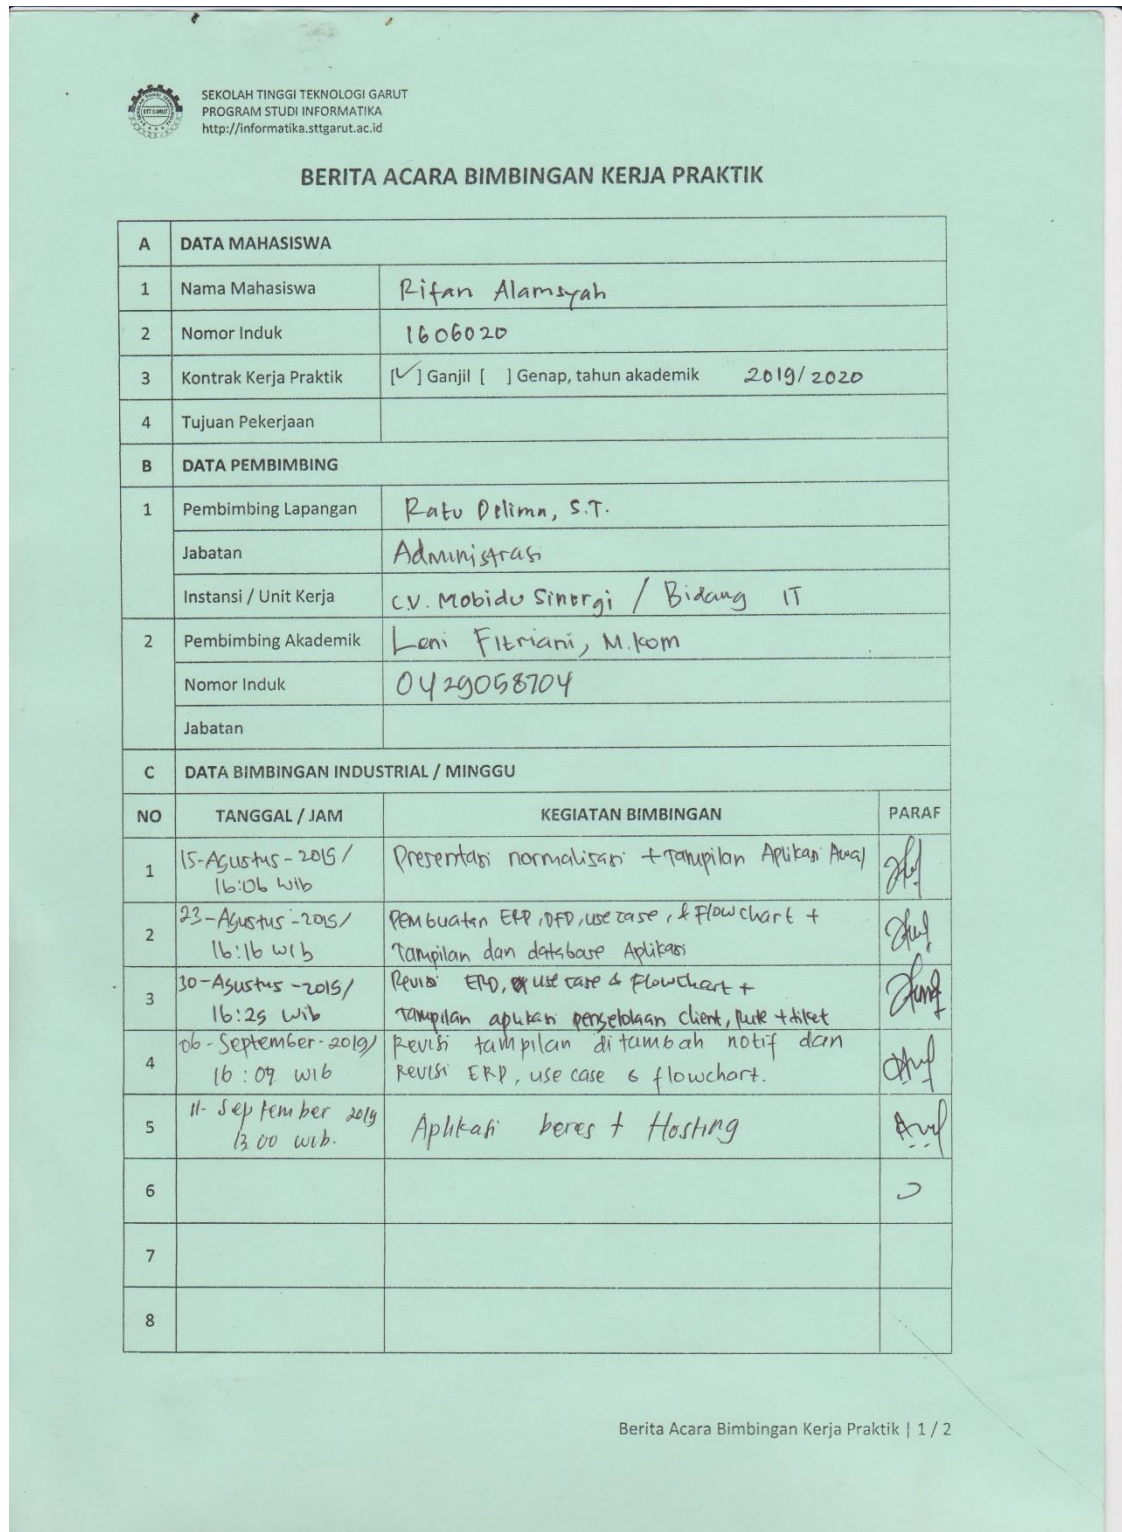 STT GARUT
SEKOLAH TINGGI TEKNOLOGI GARUT
PROGRAM STUDI INFORMATIKA
http://informatika.sttgarut.ac.id
BERITA ACARA BIMBINGAN KERJA PRAKTIK
A DATA MAHASISWA
1 Nama Mahasiswa Rifan Alamsyah
2 Nomor Induk 1606020
3 Kontrak Kerja Praktik [✓] Ganjil [ ] Genap, tahun akademik 2019/2020
4 Tujuan Pekerjaan
B DATA PEMBIMBING
1 Pembimbing Lapangan Ratu Delima, S.T.
Jabatan Administrasi
Instansi / Unit Kerja C.V. Mobidu Sinergi / Bidang IT
2 Pembimbing Akademik Leni Fitriani, M.kom
Nomor Induk 0429058704
Jabatan
C DATA BIMBINGAN INDUSTRIAL / MINGGU
NO TANGGAL / JAM KEGIATAN BIMBINGAN PARAF
1 15-Agustus-2019/ Presentasi normalisasi + Tampilan Aplikasi Awal
16:06 wib
2 23-Agustus-2019/ Pembuatan ERD, DFD, use case, & Flowchart +
16:16 wib Tampilan dan database Aplikasi
3 30-Agustus-2019/ Revisi ERD, use case & Flowchart +
16:25 wib Tampilan aplikasi pengelolaan client, Rute + tiket
4 06-September-2019/ Revisi tampilan ditambah notif dan
16:09 WIB Revisi ERD, use case & flowchart.
5 11-September 2019 Aplikasi beres + Hosting
13.00 wib.
6
7
8
Berita Acara Bimbingan Kerja Praktik | 1 / 2